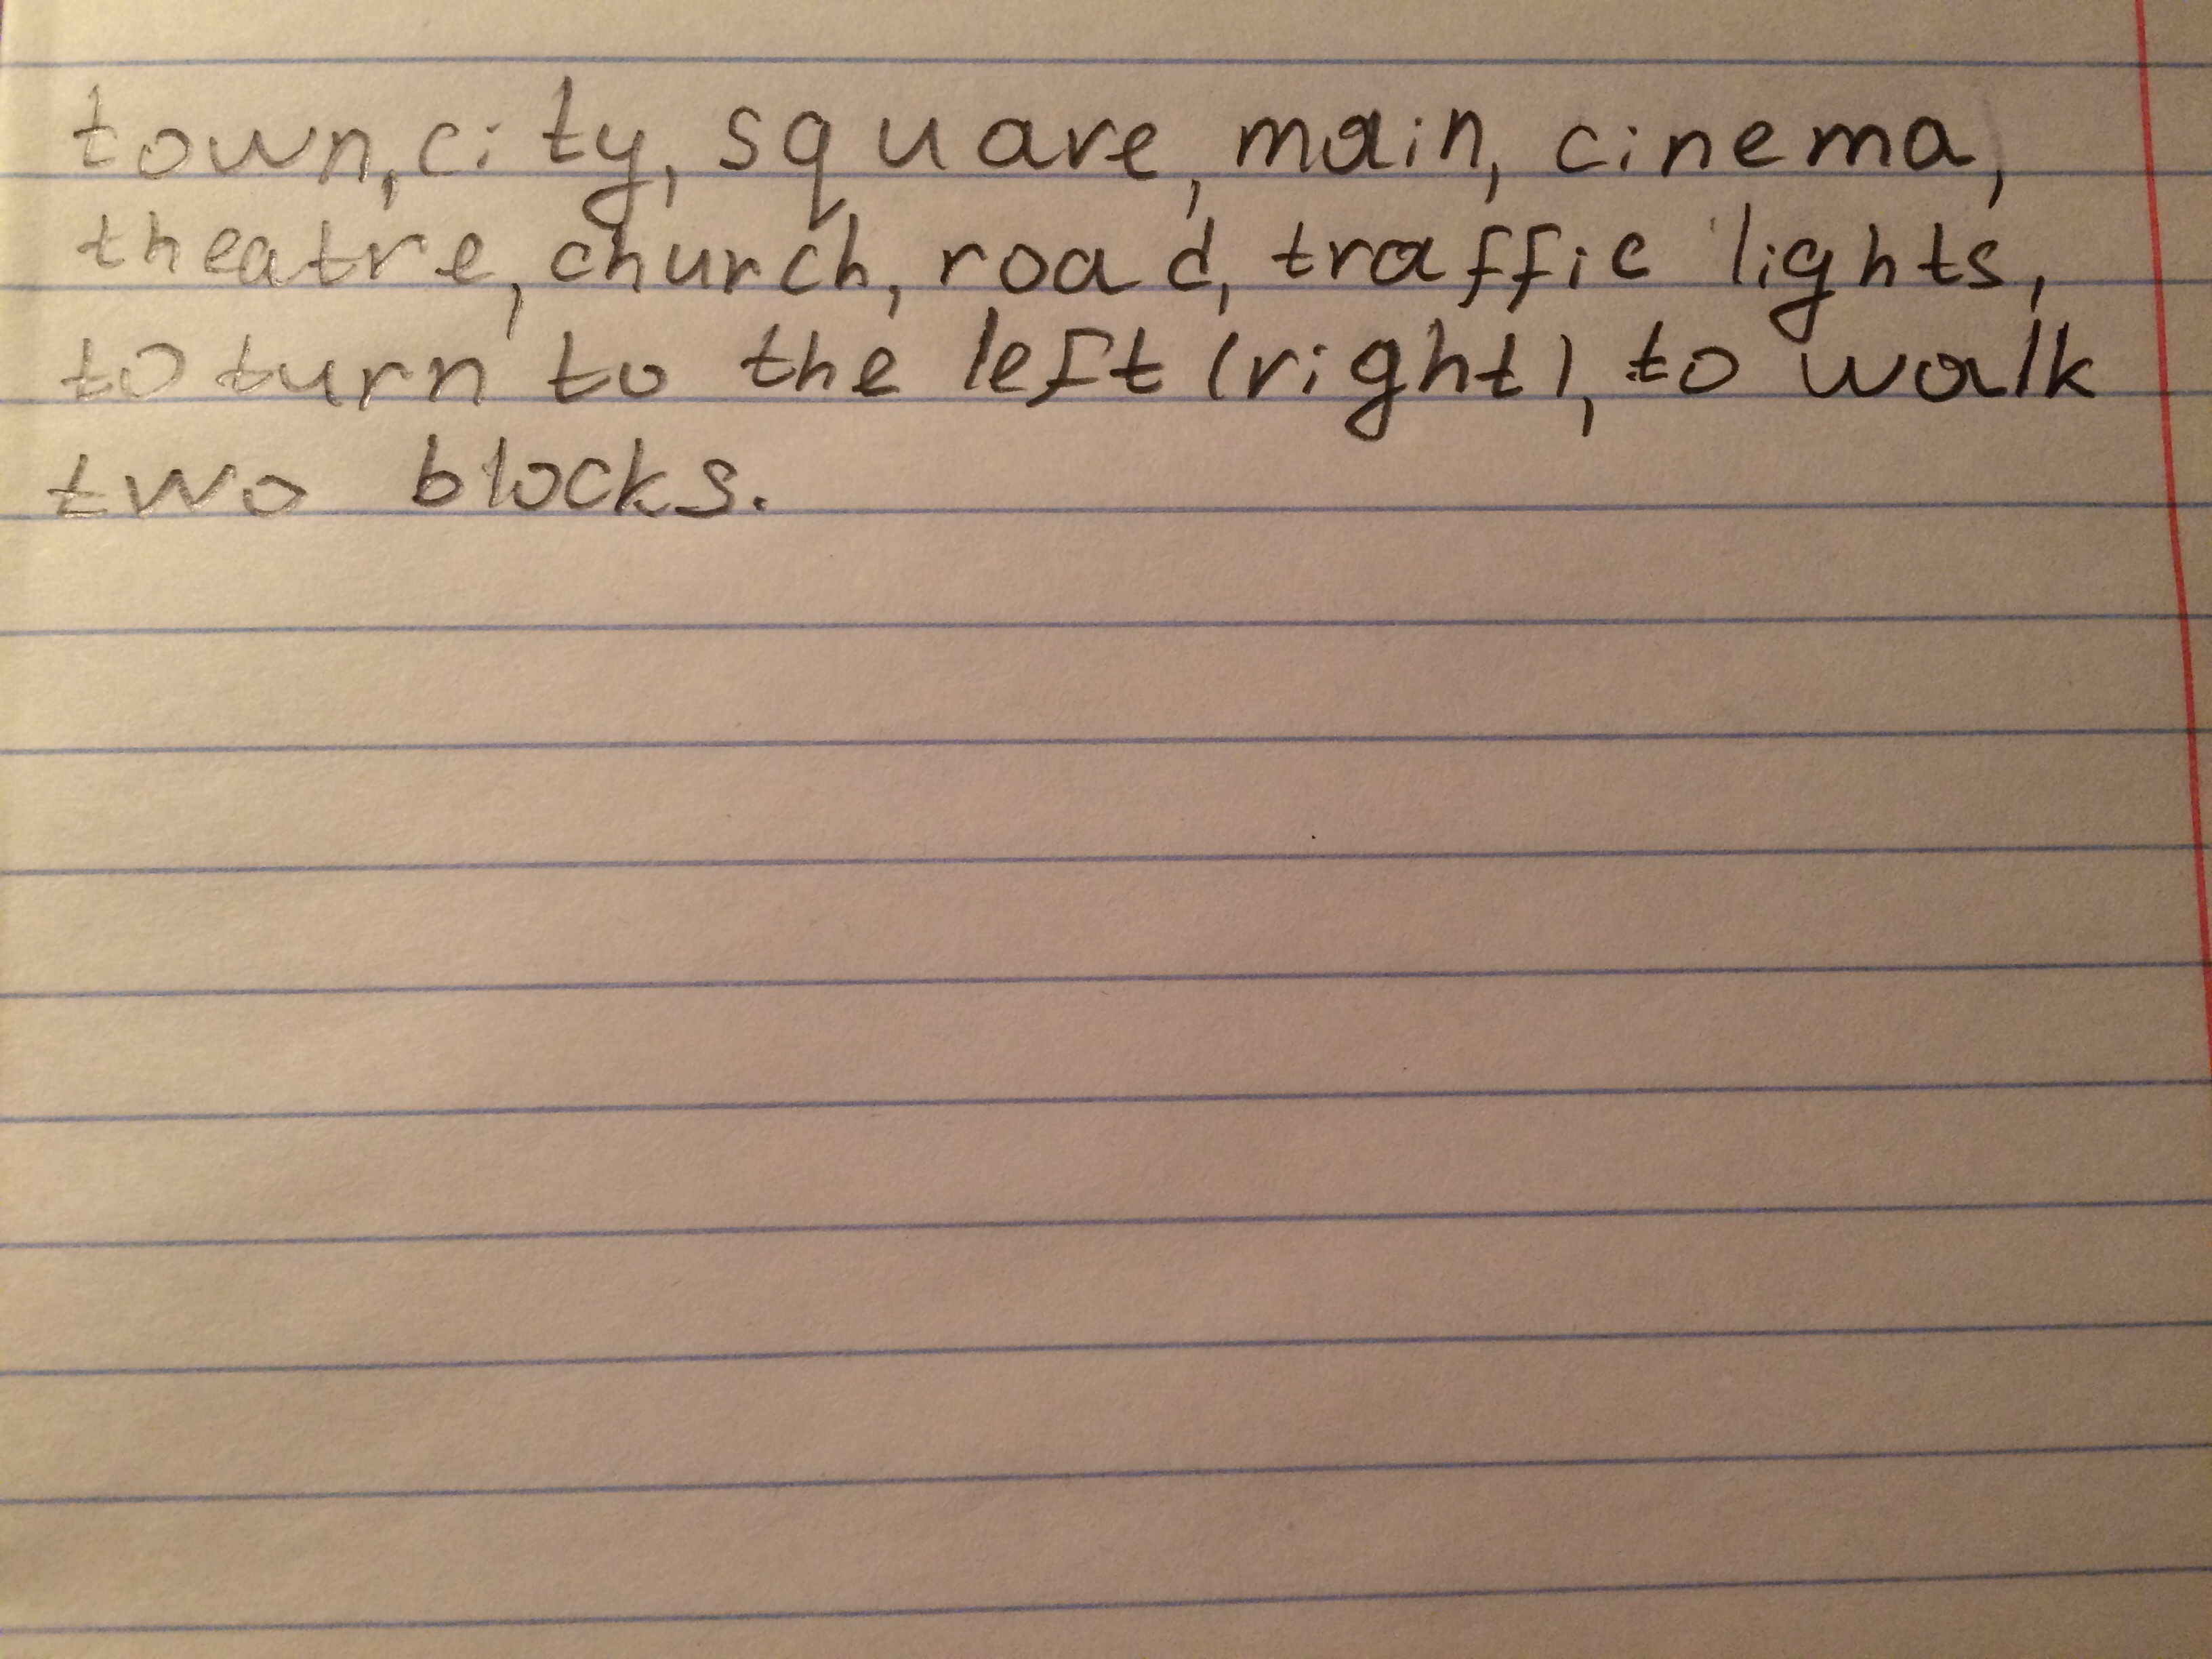 town, city, square, main, cinema,
theatre, church, road, traffic lights,
to turn to the left (right), to walk
two blocks.